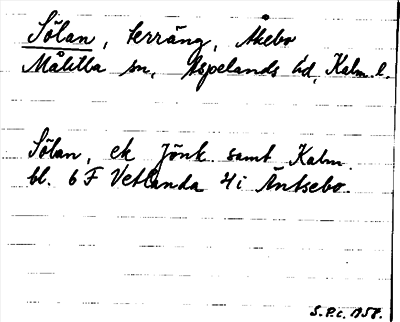 Sölan, terräng, Åkebo
Målilla sn, Aspelands hd, Kalm. l.
Sölan, ek Jönk. samt Kalm.
bl. 6 F Vetlanda 4i Äntsebo.
S.P.c. 1958.